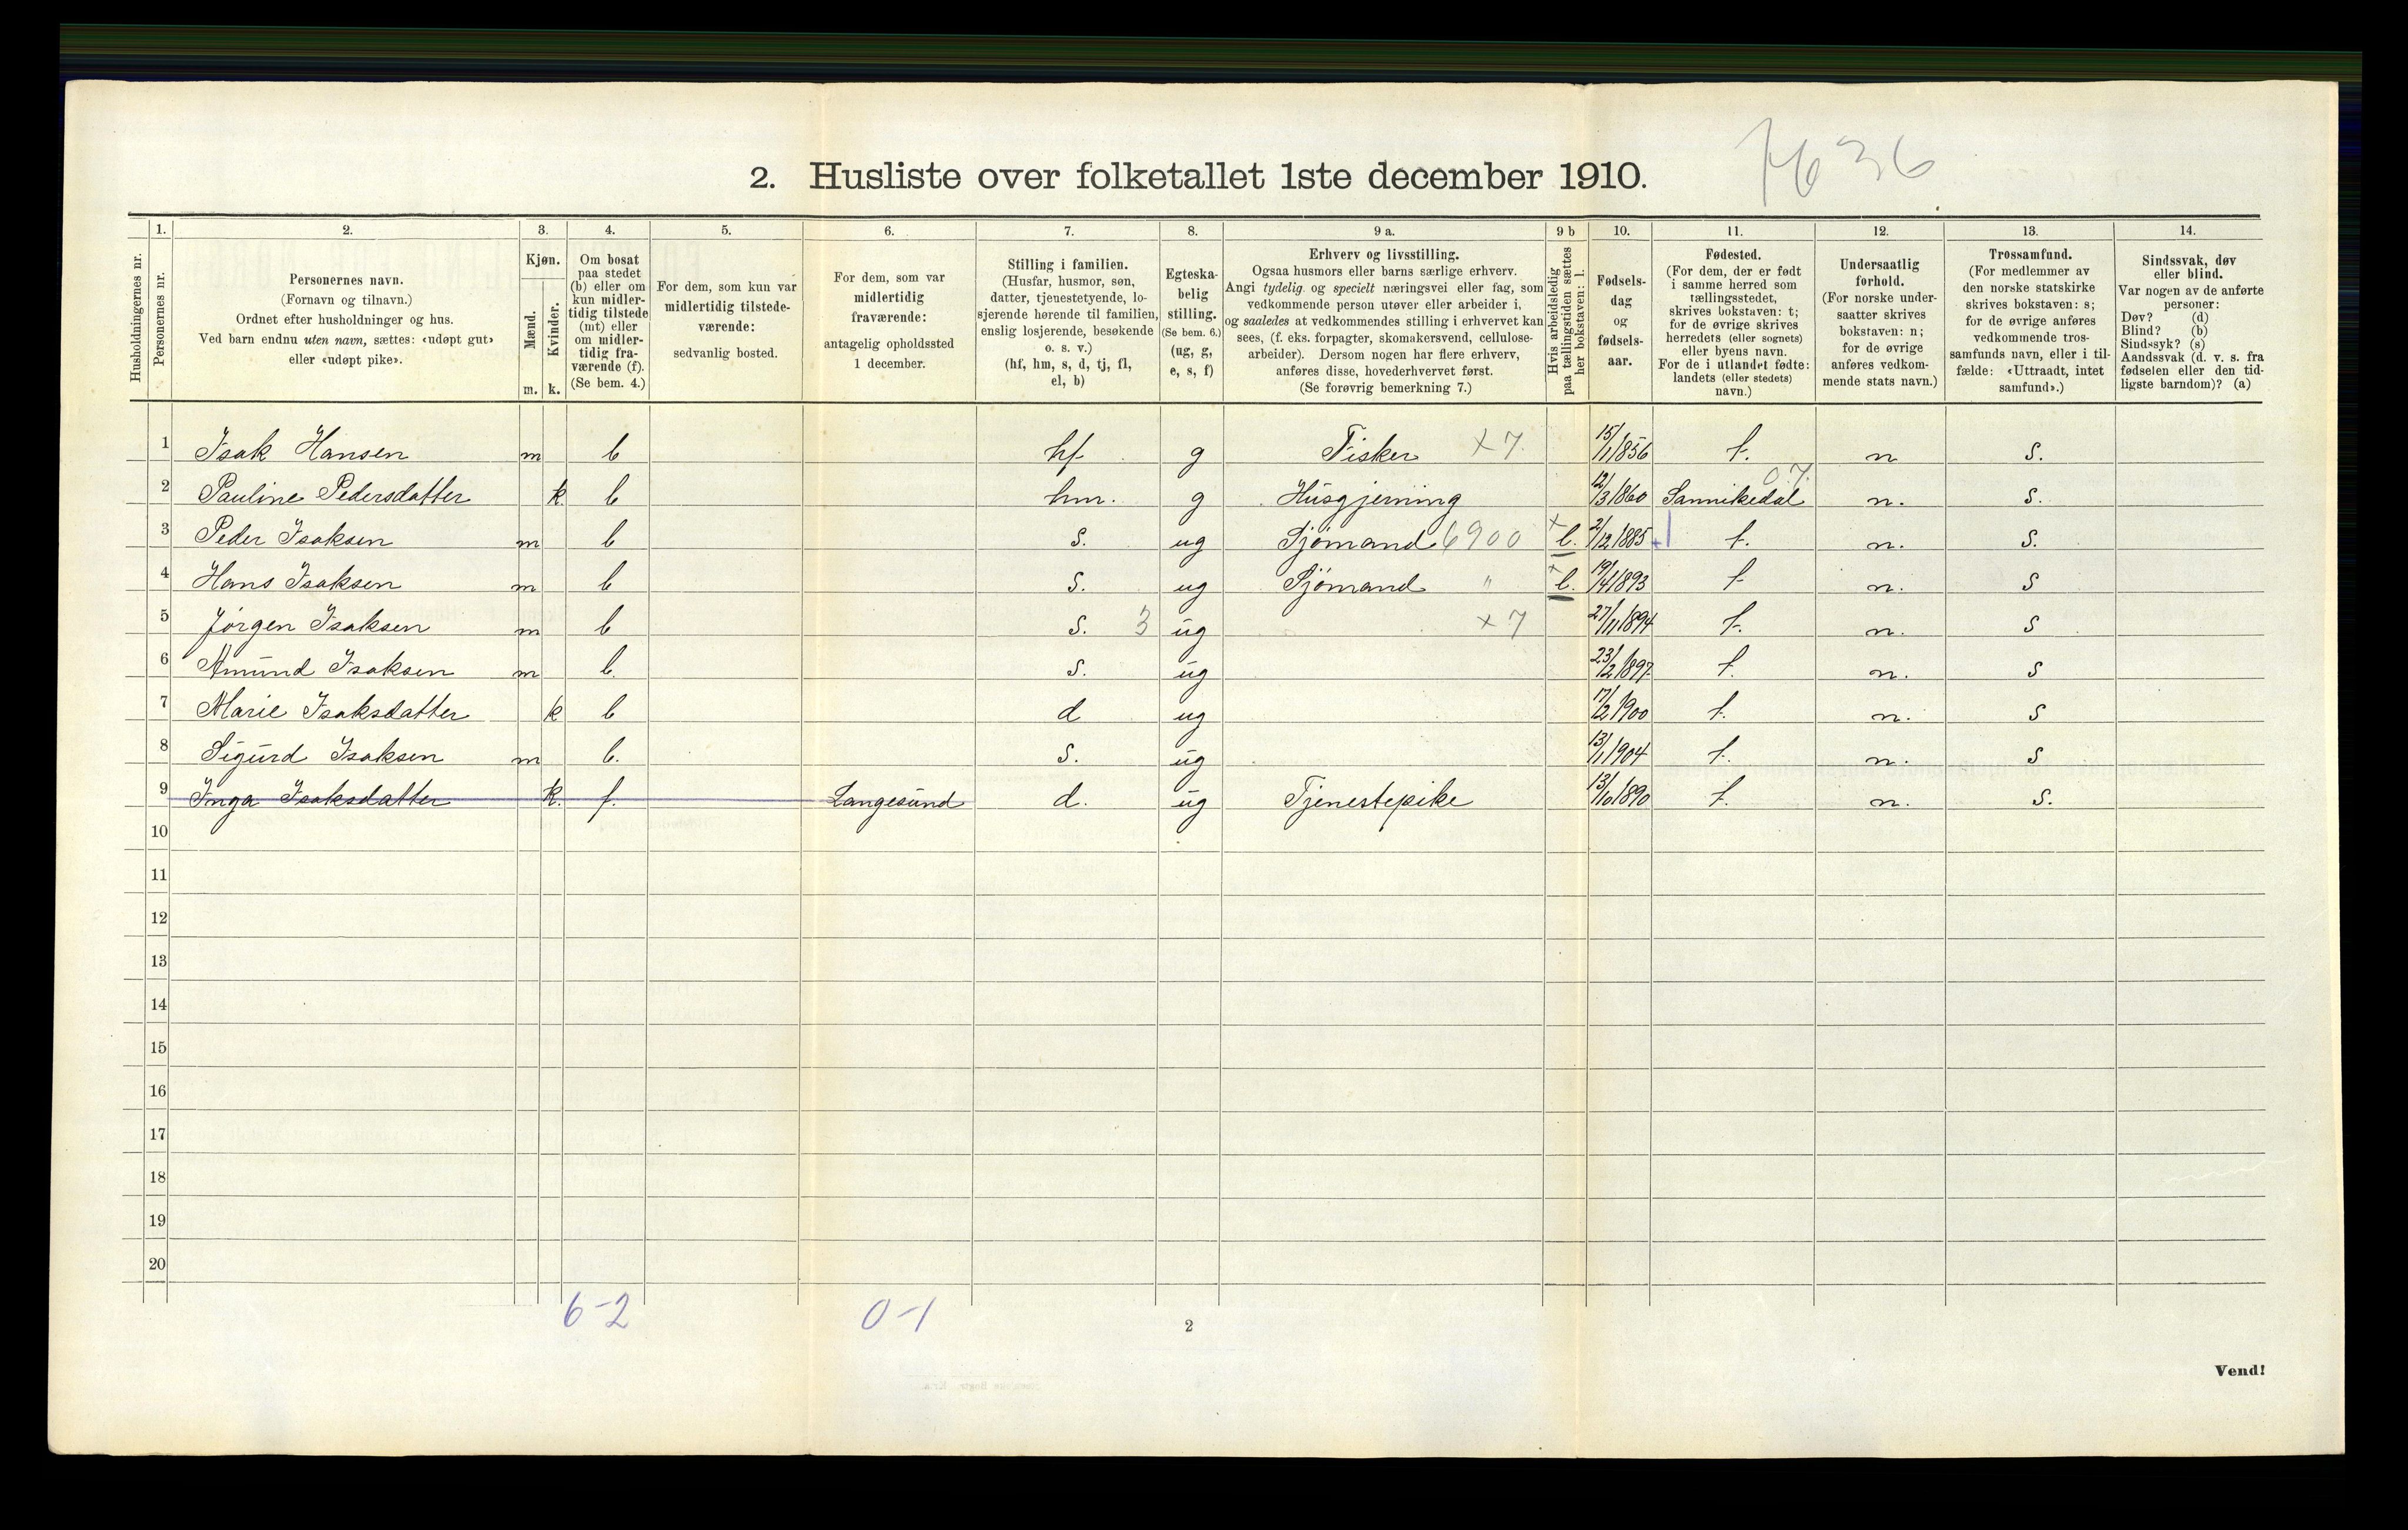 7636
2. Husliste over folketallet 1ste december 1910.
Husholdningernes nr.
1. Personernes nr.
2. Personernes navn. (Fornavn og tilnavn.) Ordnet efter husholdninger og hus. Ved barn endnu uten navn, sættes: «udøpt gut» eller «udøpt pike».
3. Kjøn. Mænd. m. Kvinder. k.
4. Om bosat paa stedet (b) eller om kun midlertidig tilstede (mt) eller om midlertidig fraværende (f). (Se bem. 4.)
5. For dem, som kun var midlertidig tilstedeværende: sedvanlig bosted.
6. For dem, som var midlertidig fraværende: antagelig opholdssted 1 december.
7. Stilling i familien. (Husfar, husmor, søn, datter, tjenestetyende, losjerende hørende til familien, enslig losjerende, besøkende o. s. v.) (hf, hm, s, d, tj, fl, el, b)
8. Egteskabelig stilling. (Se bem. 6.) (ug, g, e, s, f)
9 a. Erhverv og livsstilling. Ogsaa husmors eller barns særlige erhverv. Angi tydelig og specielt næringsvei eller fag, som vedkommende person utøver eller arbeider i, og saaledes at vedkommendes stilling i erhvervet kan sees, (f. eks. forpagter, skomakersvend, cellulosearbeider). Dersom nogen har flere erhverv, anføres disse, hovederhvervet først. (Se forøvrig bemerkning 7.)
9 b Hvis arbeidsledig paa tællingstiden sættes her bokstaven: l.
10. Fødselsdag og fødselsaar.
11. Fødested. (For dem, der er født i samme herred som tællingsstedet, skrives bokstaven: t; for de øvrige skrives herredets (eller sognets) eller byens navn. For de i utlandet fødte: landets (eller stedets) navn.)
12. Undersaatlig forhold. (For norske undersaatter skrives bokstaven: n; for de øvrige anføres vedkommende stats navn.)
13. Trossamfund. (For medlemmer av den norske statskirke skrives bokstaven: s; for de øvrige anføres vedkommende trossamfunds navn, eller i tilfælde: «Uttraadt, intet samfund».)
14. Sindssvak, døv eller blind. Var nogen av de anførte personer: Døv? (d) Blind? (b) Sindssyk? (s) Aandssvak (d. v. s. fra fødselen eller den tidligste barndom)? (a)
1 Isak Hansen m b hf g Fisker x 7 15/1 1856 t. n s.
2 Pauline Pedersdatter k b hm. g Husgjerning 12/3 1860 Sannikedal 07. n. s.
3 Peder Isaksen m b s. ug Sjømand 6900 x l. 2/12 1885 t. n. s.
4 Hans Isaksen m b s. ug Sjømand " x l. 19/4 1893 t n. s
5 Jørgen Isaksen m b s. 3 ug x 7 27/11 1894 t. n. s
6 Amund Isaksen m b. s. ug 23/2 1897 t. n. s
7 Marie Isaksdatter k b d ug 17/2 1900 t. n. s
8 Sigurd Isaksen m b. s. ug 13/1 1904 t. n. s
9 Inga Isaksdatter k. f. Langesund d. ug Tjenestepike 13/10 1890 t. n. s.
10
11
12
13
14
15
16
17
18
19
20
6-2 0-1
2
Vend!